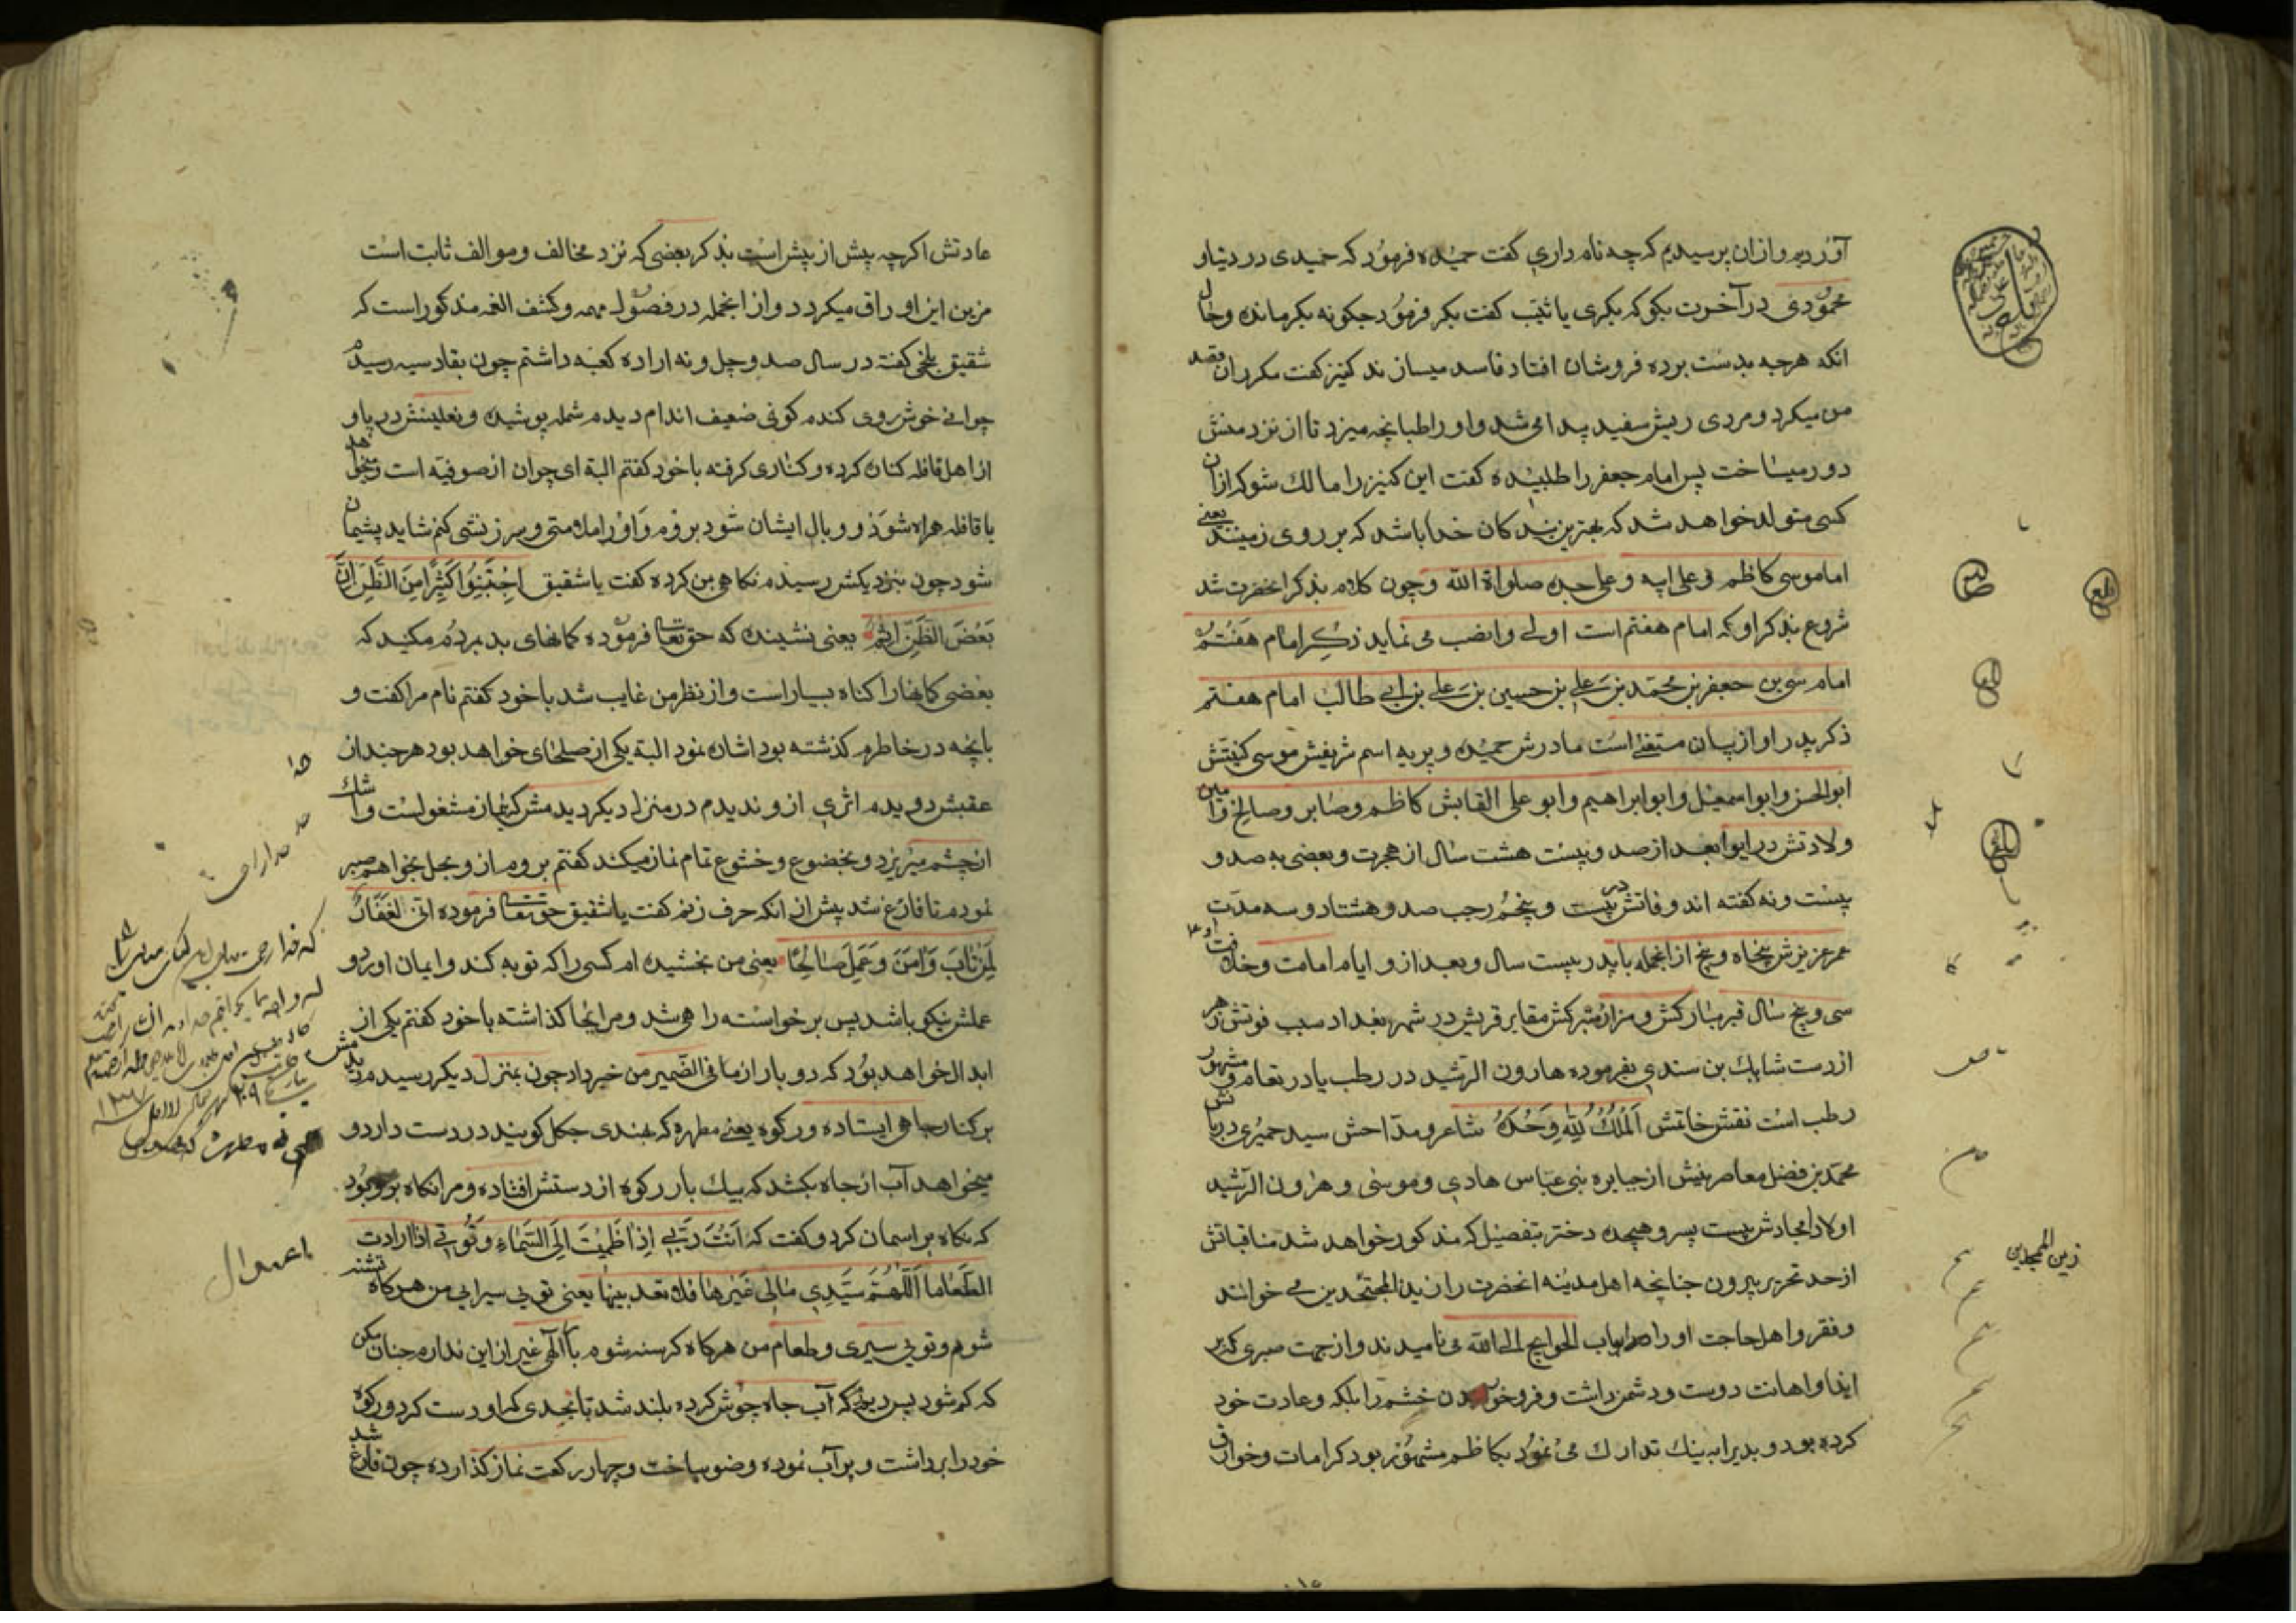 آوردیم و ازان پرسیدیم که چه نام داری گفت حمیده فرمود که حمیدی در دنیا و
محمودی در آخرت بگو که بکری یا ثیّب گفت بکر فرمود چکونه بکر مانده و حال
انکه هرچه بدست برده فروشان افتاد فاسد میسازند کنیز کفت مکرر ان قصد
من میکرد و مردی ریش سفید پیدا می شد و او را طبانچه میزد تا از نزد منش
دور میساخت پس امام جعفر را طلبیده کفت این کنیز را مالک شو که از ان
کسی متولد خواهد شد که بهترین بندکان خدا باشد که بر روی زمینند یعنی
امام موسی کاظم و علی ابیه و علی جده صلواة الله و چون کلام بذکر انحضرت شد
شروع بذکر او که امام هفتم است اولی و انضب می نماید ذکر امام هفتم
امام موسی بن جعفر بن محمد بن علی بن حسین بن علی بن ابی طالب امام هفتم
ذکر پدر او از بیان مستغنی است مادرش حمیده و بربریه اسم شریفش موسی کنیتش
ابو الحسن و ابو اسمعیل و ابو ابراهیم و ابو علی القابش کاظم و صابر و صالح و امین
ولادتش در ابوا بعد از صد و بیست هشت سال از هجرت و بعضی به صد و
بیست و نه کفته اند و فاتش در بیست و پنجم رجب صد و هشتاد و سه مدت
عمر عزیزش پنجاه و پنج از انجمله با پدر بیست سال و بعد از و ایام امامت و خلافت او
سی و پنج سال قبر مبارکش و مزار متبرکش مقابر قریش در شهر بغداد سبب فوتش زهر
از دست شاهک بن سندی بفرموده هارون الرشید در رطب یا در تعام و مشهور
رطب است نقش خاتمش اَلْمُلْكُ لِلّٰهِ وَحْدَهُ شاعر و مدّاحش سید حمیری دربانش
محمد بن فضل معاصرینش از جبابره بنی عباس هادی و موسی و هرون الرشید
اولاد امجادش بیست پسر و هیجده دختر بتفصیل که مذکور خواهد شد مناقباتش
از حد تحریر بیرون چنانچه اهل مدینه انحضرت را زین المجتهدین می خوانند
و فقر و اهل حاجت او را باب الحوایج الی الله می نامیدند و از جهت صبری که بر
ایذا و اهانت دوست و دشمن داشت و فروخوردن خشم را بلکه و عادت خود
کرده بود و بدیرا به نیک تدارک می نمود بکاظم مشهور بود کرامات و خوارق
زین المجتهدین
عادتش اکرچه پیش از پیش است بذکر بعضی که نزد مخالف و موالف ثابت است
مزین این اوراق میکردد و از انجمله در فصول مهمه و کشف الغمه مذکور است که
شقیق بلخی کفته در سال صد و چل و نه اراده کعبه داشتم چون بقادسیه رسیدم
جوانی خوش روی کندم کونی ضعیف اندام دیدم شمله پوشیده و نعلینش در پا و
از اهل قافله کناره کرده و کناری کرفته با خود کفتم البة ای جوان از صوفیه است و میخواهد
با قافله همراه شود و وبال ایشان شود بروم و او را ملامتی و سرزنشی کنم شاید پشیمان
شود چون بنزدیکش رسیدم نکاهی بمن کرده کفت یا شقیق اِجْتَنِبُوا كَثِيرًا مِنَ الظَّنِّ اِنَّ
بَعْضَ الظَّنِّ اِثْمٌ یعنی نشینده که حق تعا فرموده کمانهای بد بمردم مکنید که
بعضی کمانها را کناه بسیار است و از نظر من غایب شد با خود کفتم نام مرا کفت و
بانچه در خاطرم کذشته بود اشاره نمود البته یکی از صلحای خواهد بود هر چند از
عقبش دویدم اثری از و ندیدم در منزل دیکر دیدمش که بنماز مشغولست و اشک
از چشم میریزد و بخضوع و خشوع تمام نماز میکند کفتم بروم از و بحل بخواهم صبر
نمودم تا فارغ شد پیش از انکه حرف زنم کفت یا شقیق حق تعا فرموده اِنّی لَغَفّارٌ
لِمَنْ تَابَ وَاٰمَنَ وَعَمِلَ صَالِحًا یعنی من بخشیده ام کسی را که توبه کند و ایمان اورد و
عملش نیکو باشد پس برخواسته راهی شد و مرا انجا کذاشته با خود کفتم یکی از
ابدال خواهد بود که دو بار از ما فی الضمیر من خبر داد چون بمنزل دیکر رسیدم دیدمش
بر کنار چاهی ایستاده و رکوه یعنی مطهره که بهندی چکل کویند در دست دارد و
میخواهد آب از چاه بکشد که بیک بار رکوه از دستش افتاده و مرا نکاه بر و بود
که نکاه بر اسمان کرد و کفت که اَنْتَ رَبّی اِذَا ظَمِئْتَ اِلَی السَّمَاءِ وَ قُوتی اذا ارادت
الطعاما اَللّٰهُمَّ سَیّدی مالی غیرها فلا تعدبنیها یعنی تویی سیرابی من هرکاه تشنه
شوم و تویی سیری و طعام من هرکاه کرسنه شوم بار الهی غیر از این ندارم چنان مکن
که کم شود پس دیدم که آب چاه جوش کرده بلند شد تا بحدی که او دست کرد و رکوه
خود را برداشت و پر آب نموده وضو ساخت و چهار رکعت نماز کذارده چون فارغ شد